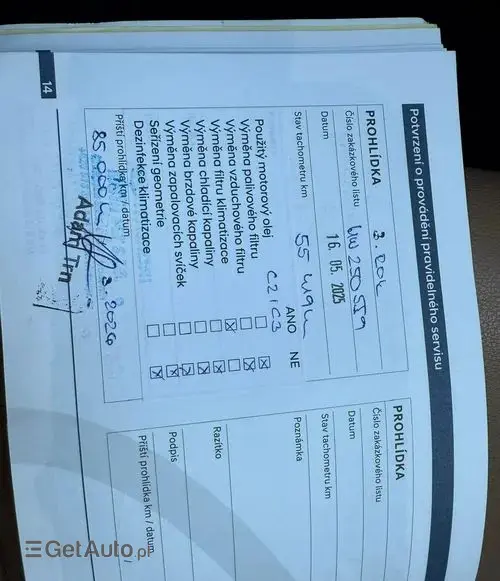 Potvrzení o provádění pravidelného servisu
PROHLÍDKA 3. ROK
Číslo zakázkového listu UW250559
Datum 16. 05. 2025
Stav tachometru km 55
ANO NE
Použitý motorový olej C2/C3
Výměna palivového filtru
Výměna vzduchového filtru
Výměna filtru klimatizace
Výměna chladicí kapaliny
Výměna brzdové kapaliny
Výměna zapalovacích svíček
Seřízení geometrie
Dezinfekce klimatizace
Příští prohlídka km / datum
85 000 2026
Adam Trn
14
PROHLÍDKA
Číslo zakázkového listu
Datum
Stav tachometru km
Poznámka
Razítko
Podpis
Příští prohlídka km / datum
GetAuto.pl